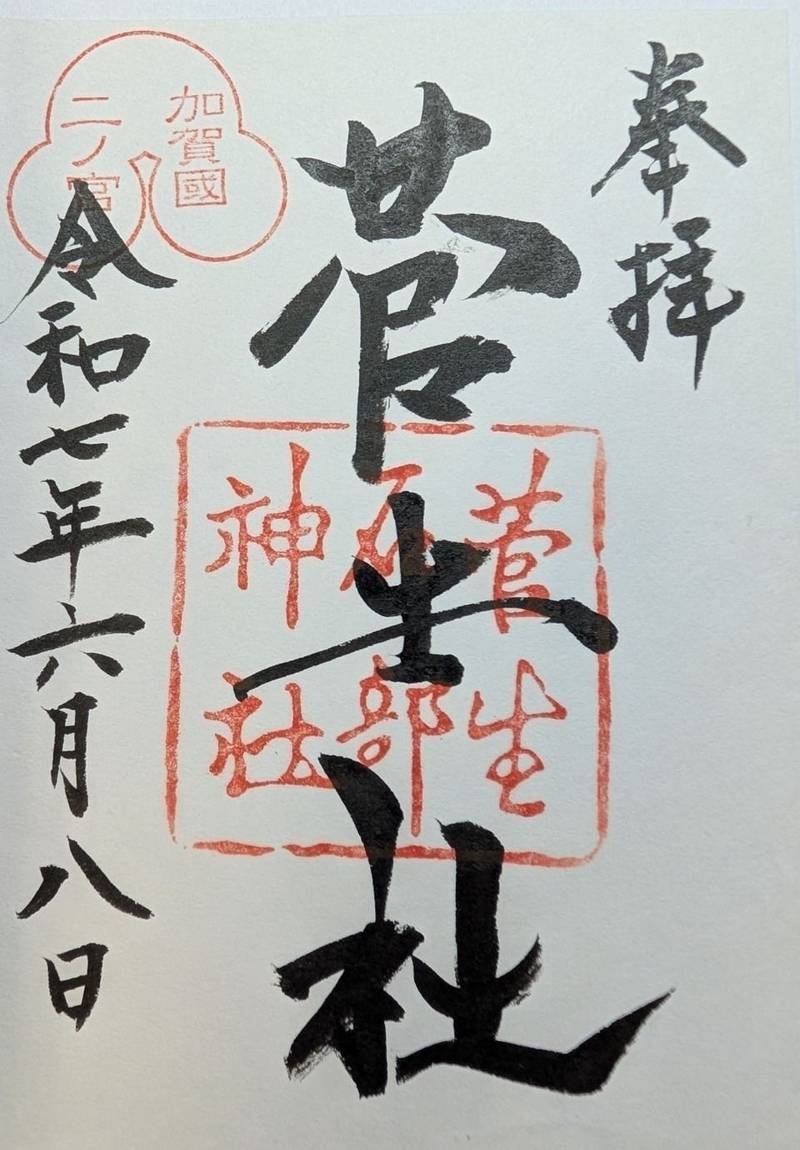 奉拝
菅生社
菅生
石部
神社
加賀國
二ノ宮
令和七年六月八日